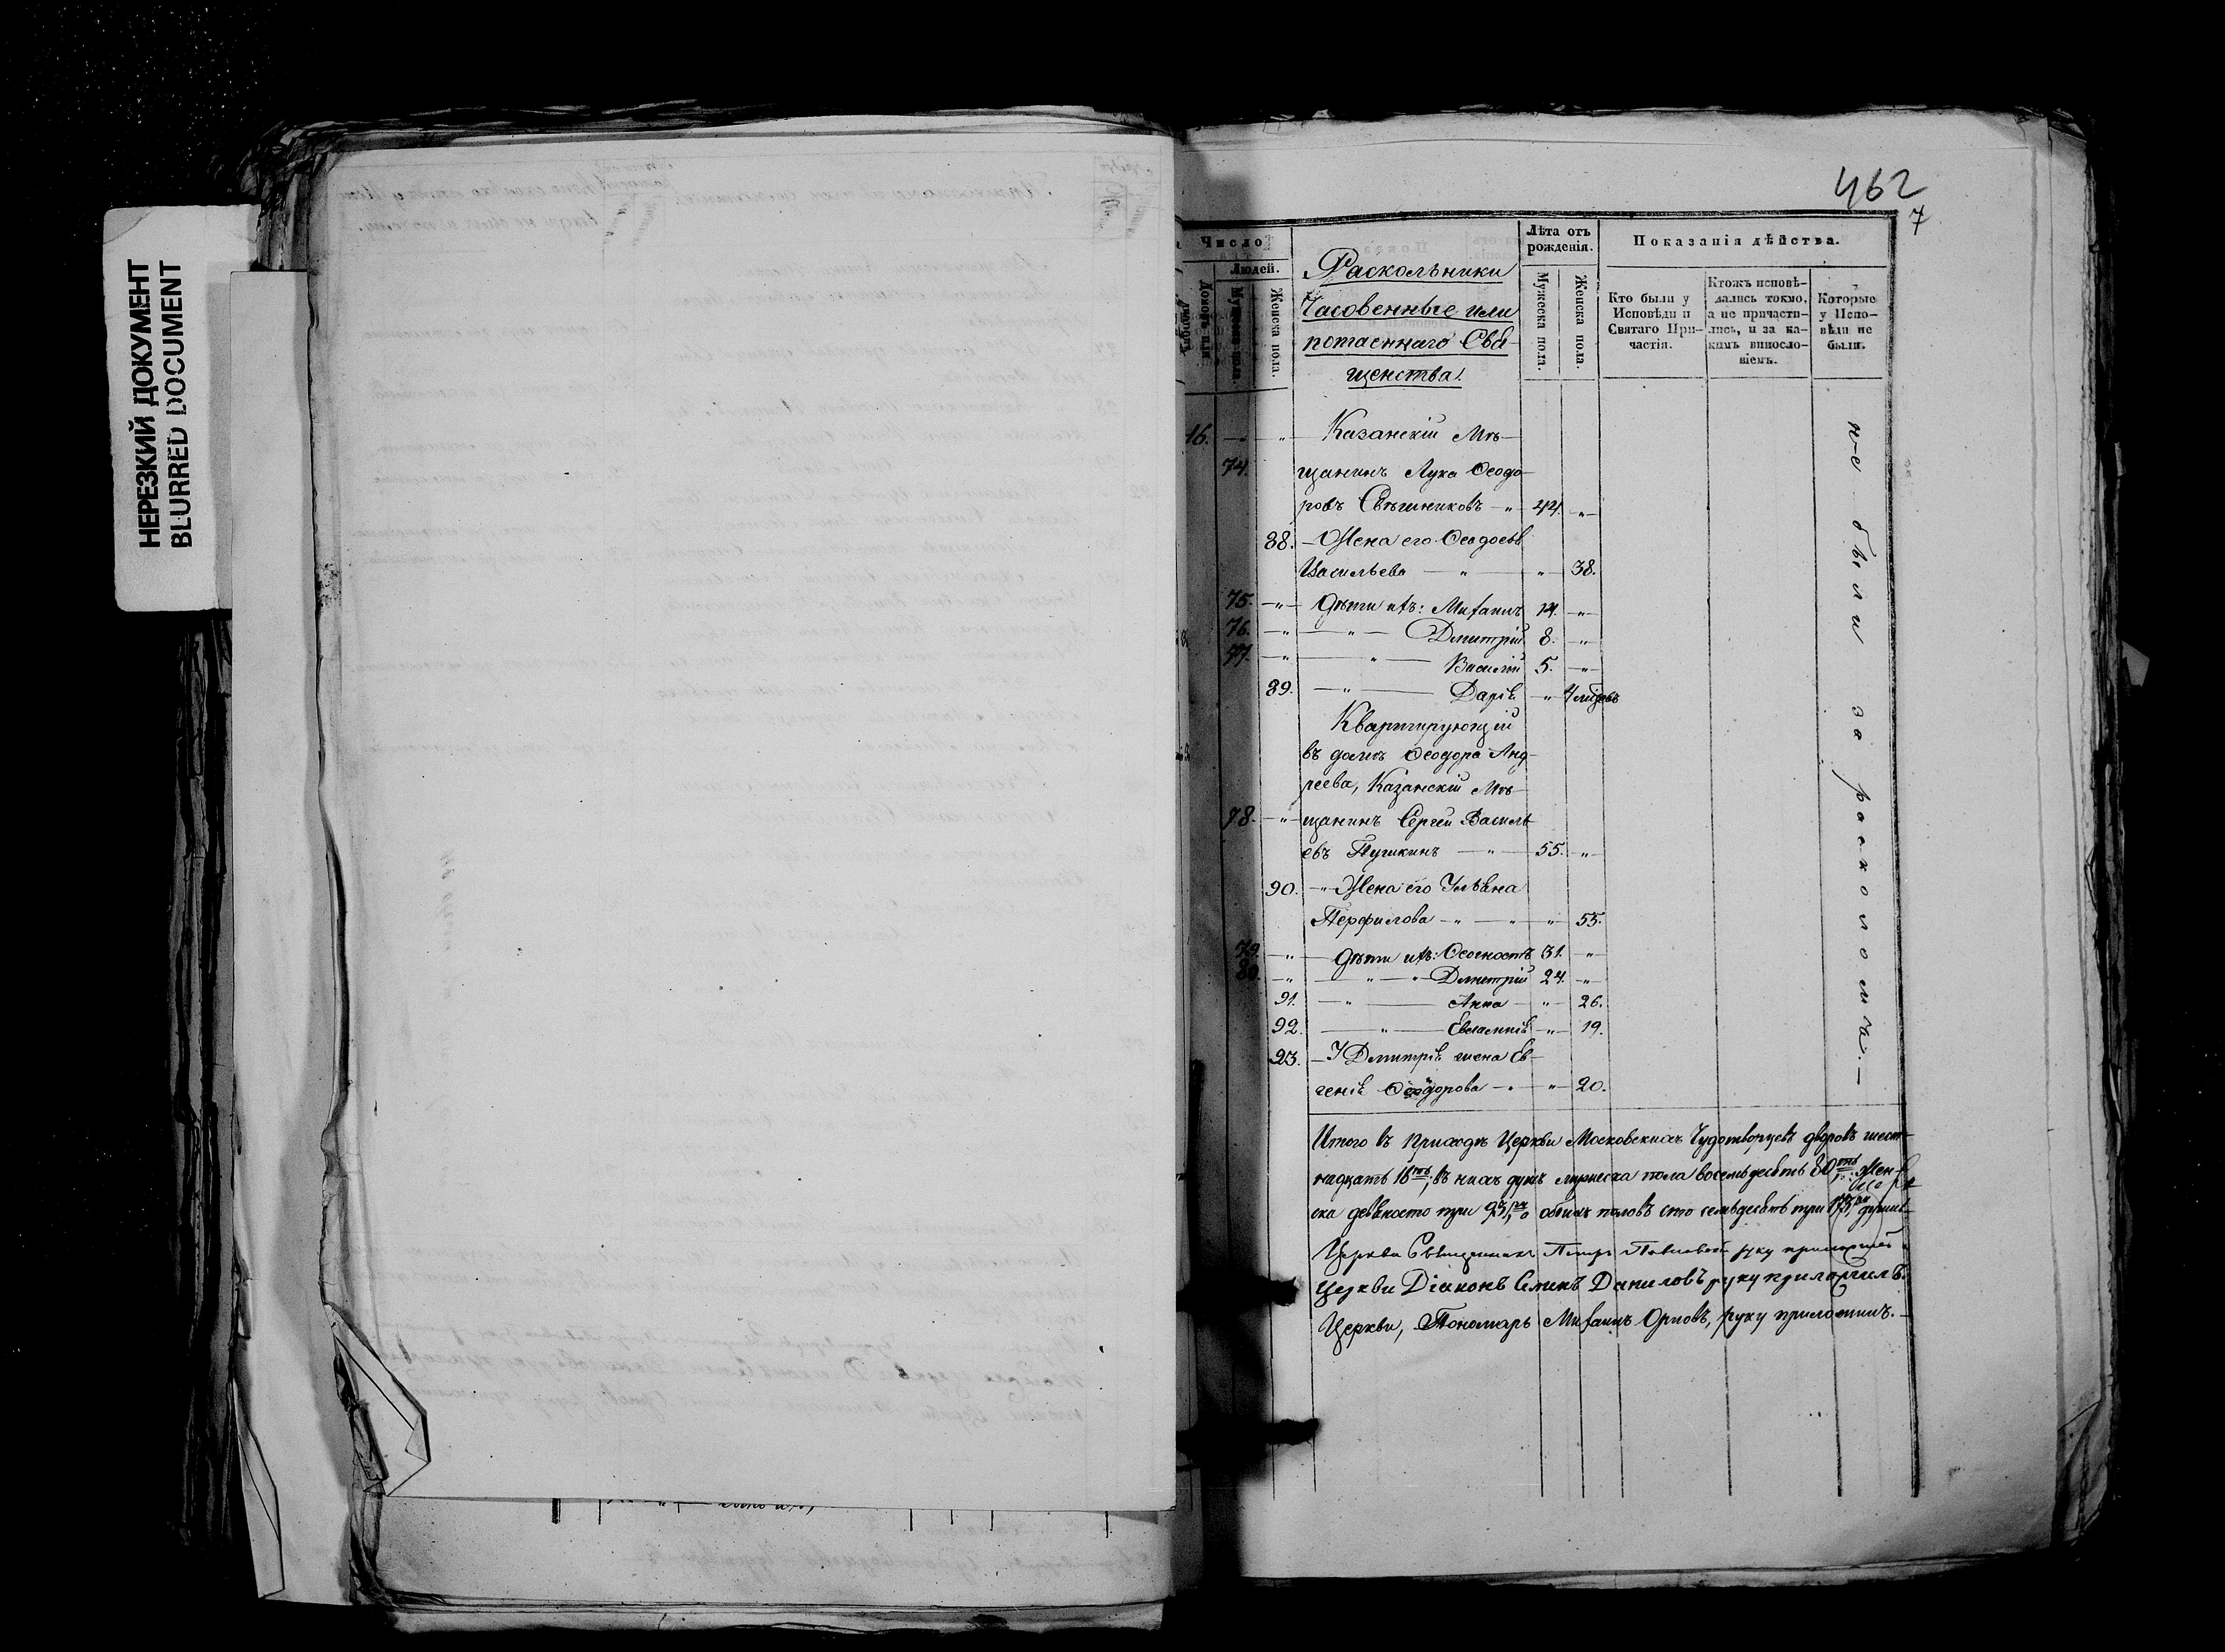 НЕРЕЗКИЙ ДОКУМЕНТ
BLURRED DOCUMENT
462
7
Число
Людей.
Мужеска пола.
Женска пола.
Раскольники
Часовенные или
потаеннаго Свя-
щенства.
Лѣта отъ рожденія.
Мужеска пола.
Женска пола.
Показанія дѣйства.
Кто были у Исповѣди и Святаго При-частія.
Ктожъ исповѣ-дались токмо, а не причасти-лись, и за ка-кимъ виносло-віемъ.
Которые у Испо-вѣди не были.
16. — „ — Казанскій Мѣ-
74. щанинъ Лука Ѳеодо-
ровъ Свѣшниковъ — „ — 44. — „ —
88. — Жена его Ѳеодосья
Васильева — „ — „ — 38.
75. — „ — Дѣти ихъ: Михаилъ 14. — „ —
76. — „ — „ — Дмитрій 8. — „ —
77. — „ — „ — Василій 5. — „ —
89. — „ — Дарія „ 4 мѣсяцевъ
Квартирующій
въ домѣ Ѳеодора Анд-
реева, Казанскій Мѣ-
78. — „ — щанинъ Сергѣй Василь-
евъ Пушкинъ — „ — 55. — „ —
90. — „ — Жена его Ульяна
Перфилова — „ — „ — „ — 55.
79. — „ — Дѣти ихъ: Ѳеогностъ 31. — „ —
80. — „ — „ — „ — Дмитрій 24. — „ —
91. — „ — Анна — „ — 26.
92. — „ — Евлампія — „ — 19.
93. — У Дмитрія жена Ев-
генія Ѳеодорова — „ — 20.
не были за расколомъ. —
Итого въ приходѣ Церкви Московскихъ Чудотворцевъ дворовъ шест-
надцать 16ть, въ нихъ душъ мужеска пола восемьдесятъ 80тъ, жен-
ска девяносто три 93,ри а обоихъ половъ сто семьдесятъ три 173,ри душъ
Церкви Священникъ Петръ руку приложилъ
Церкви Діаконъ Симеонъ Даниловъ руку приложилъ.
Церкви, Пономарь Михаилъ Орловъ, руку приложилъ. —